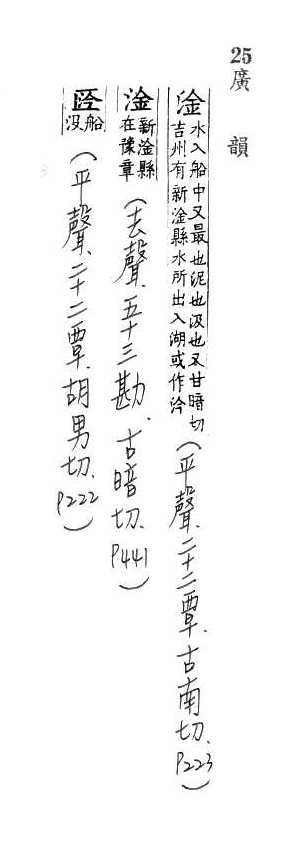 25
廣韻
淦 水入船中又最也泥也汲也又甘暗切
吉州有新淦縣水所出入湖或作汵
(平聲、二十二覃、古南切、P223)
淦 新淦縣
在豫章
(去聲、五十三勘、古暗切、P441)
船
没
(平聲、二十二覃、胡男切、P222)